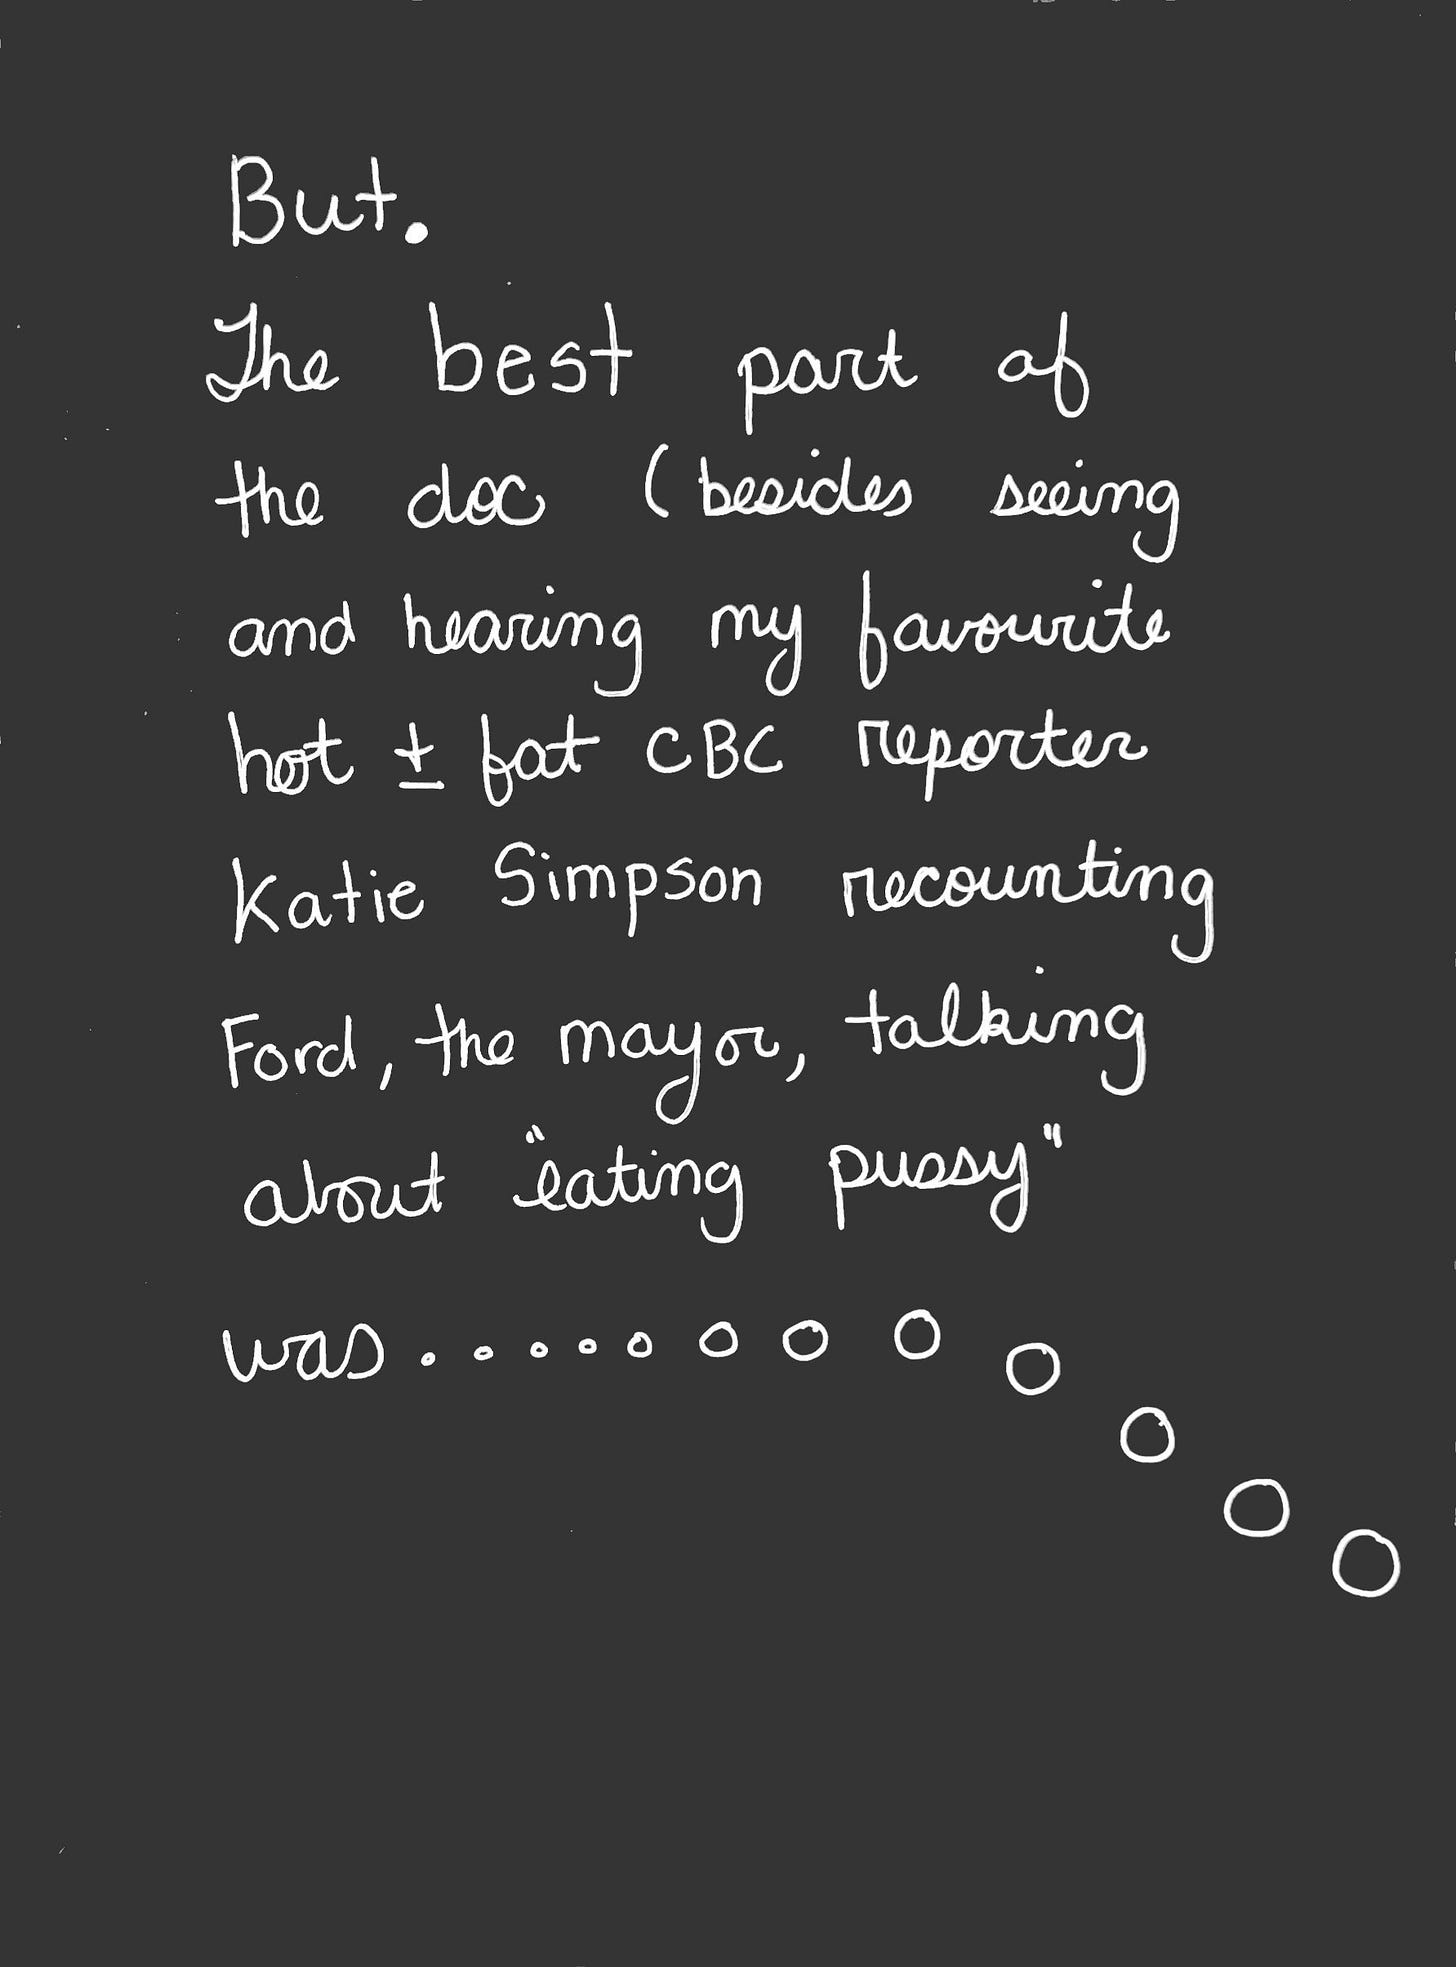 But.
The best part of
the doc (besides seeing
and hearing my favourite
hot ± fat CBC reporter
Katie Simpson recounting
Ford, the mayor, talking
about "eating pussy"
was............